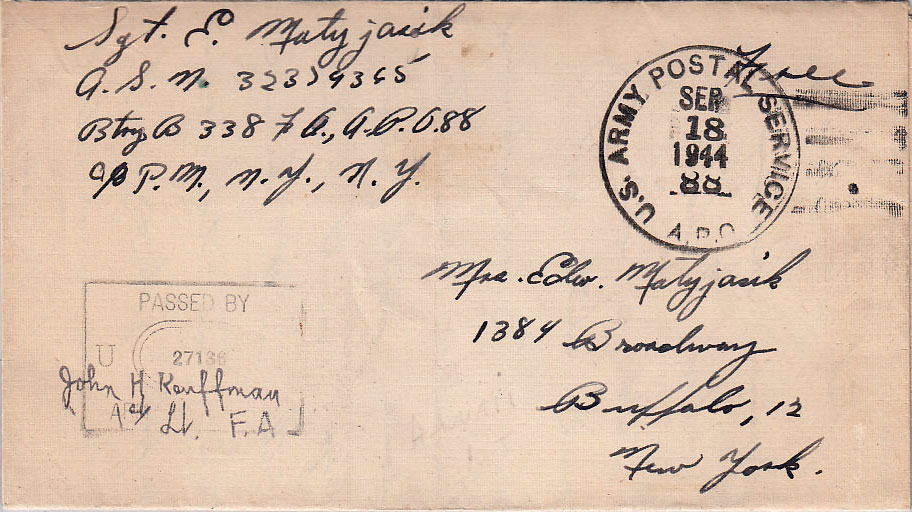 Sgt. E. Matyjasik
A.S.N. 32379365
Btry B 338 F.A., A.P.O. 88
c/o P.M., N.Y., N.Y.
Free
U.S. ARMY POSTAL SERVICE
SEP
18
1944
88
A.P.O.
Mrs. Edw. Matyjasik
1384 Broadway
Buffalo, 12
New York.
PASSED BY
U
27136
John H Kauffman
1st Lt. F.A